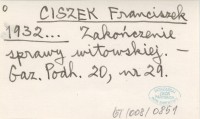 CISZEK Franciszek
1932... Zakończenie
sprawy witowskiej. –
Gaz. Podh. 20, nr 29.